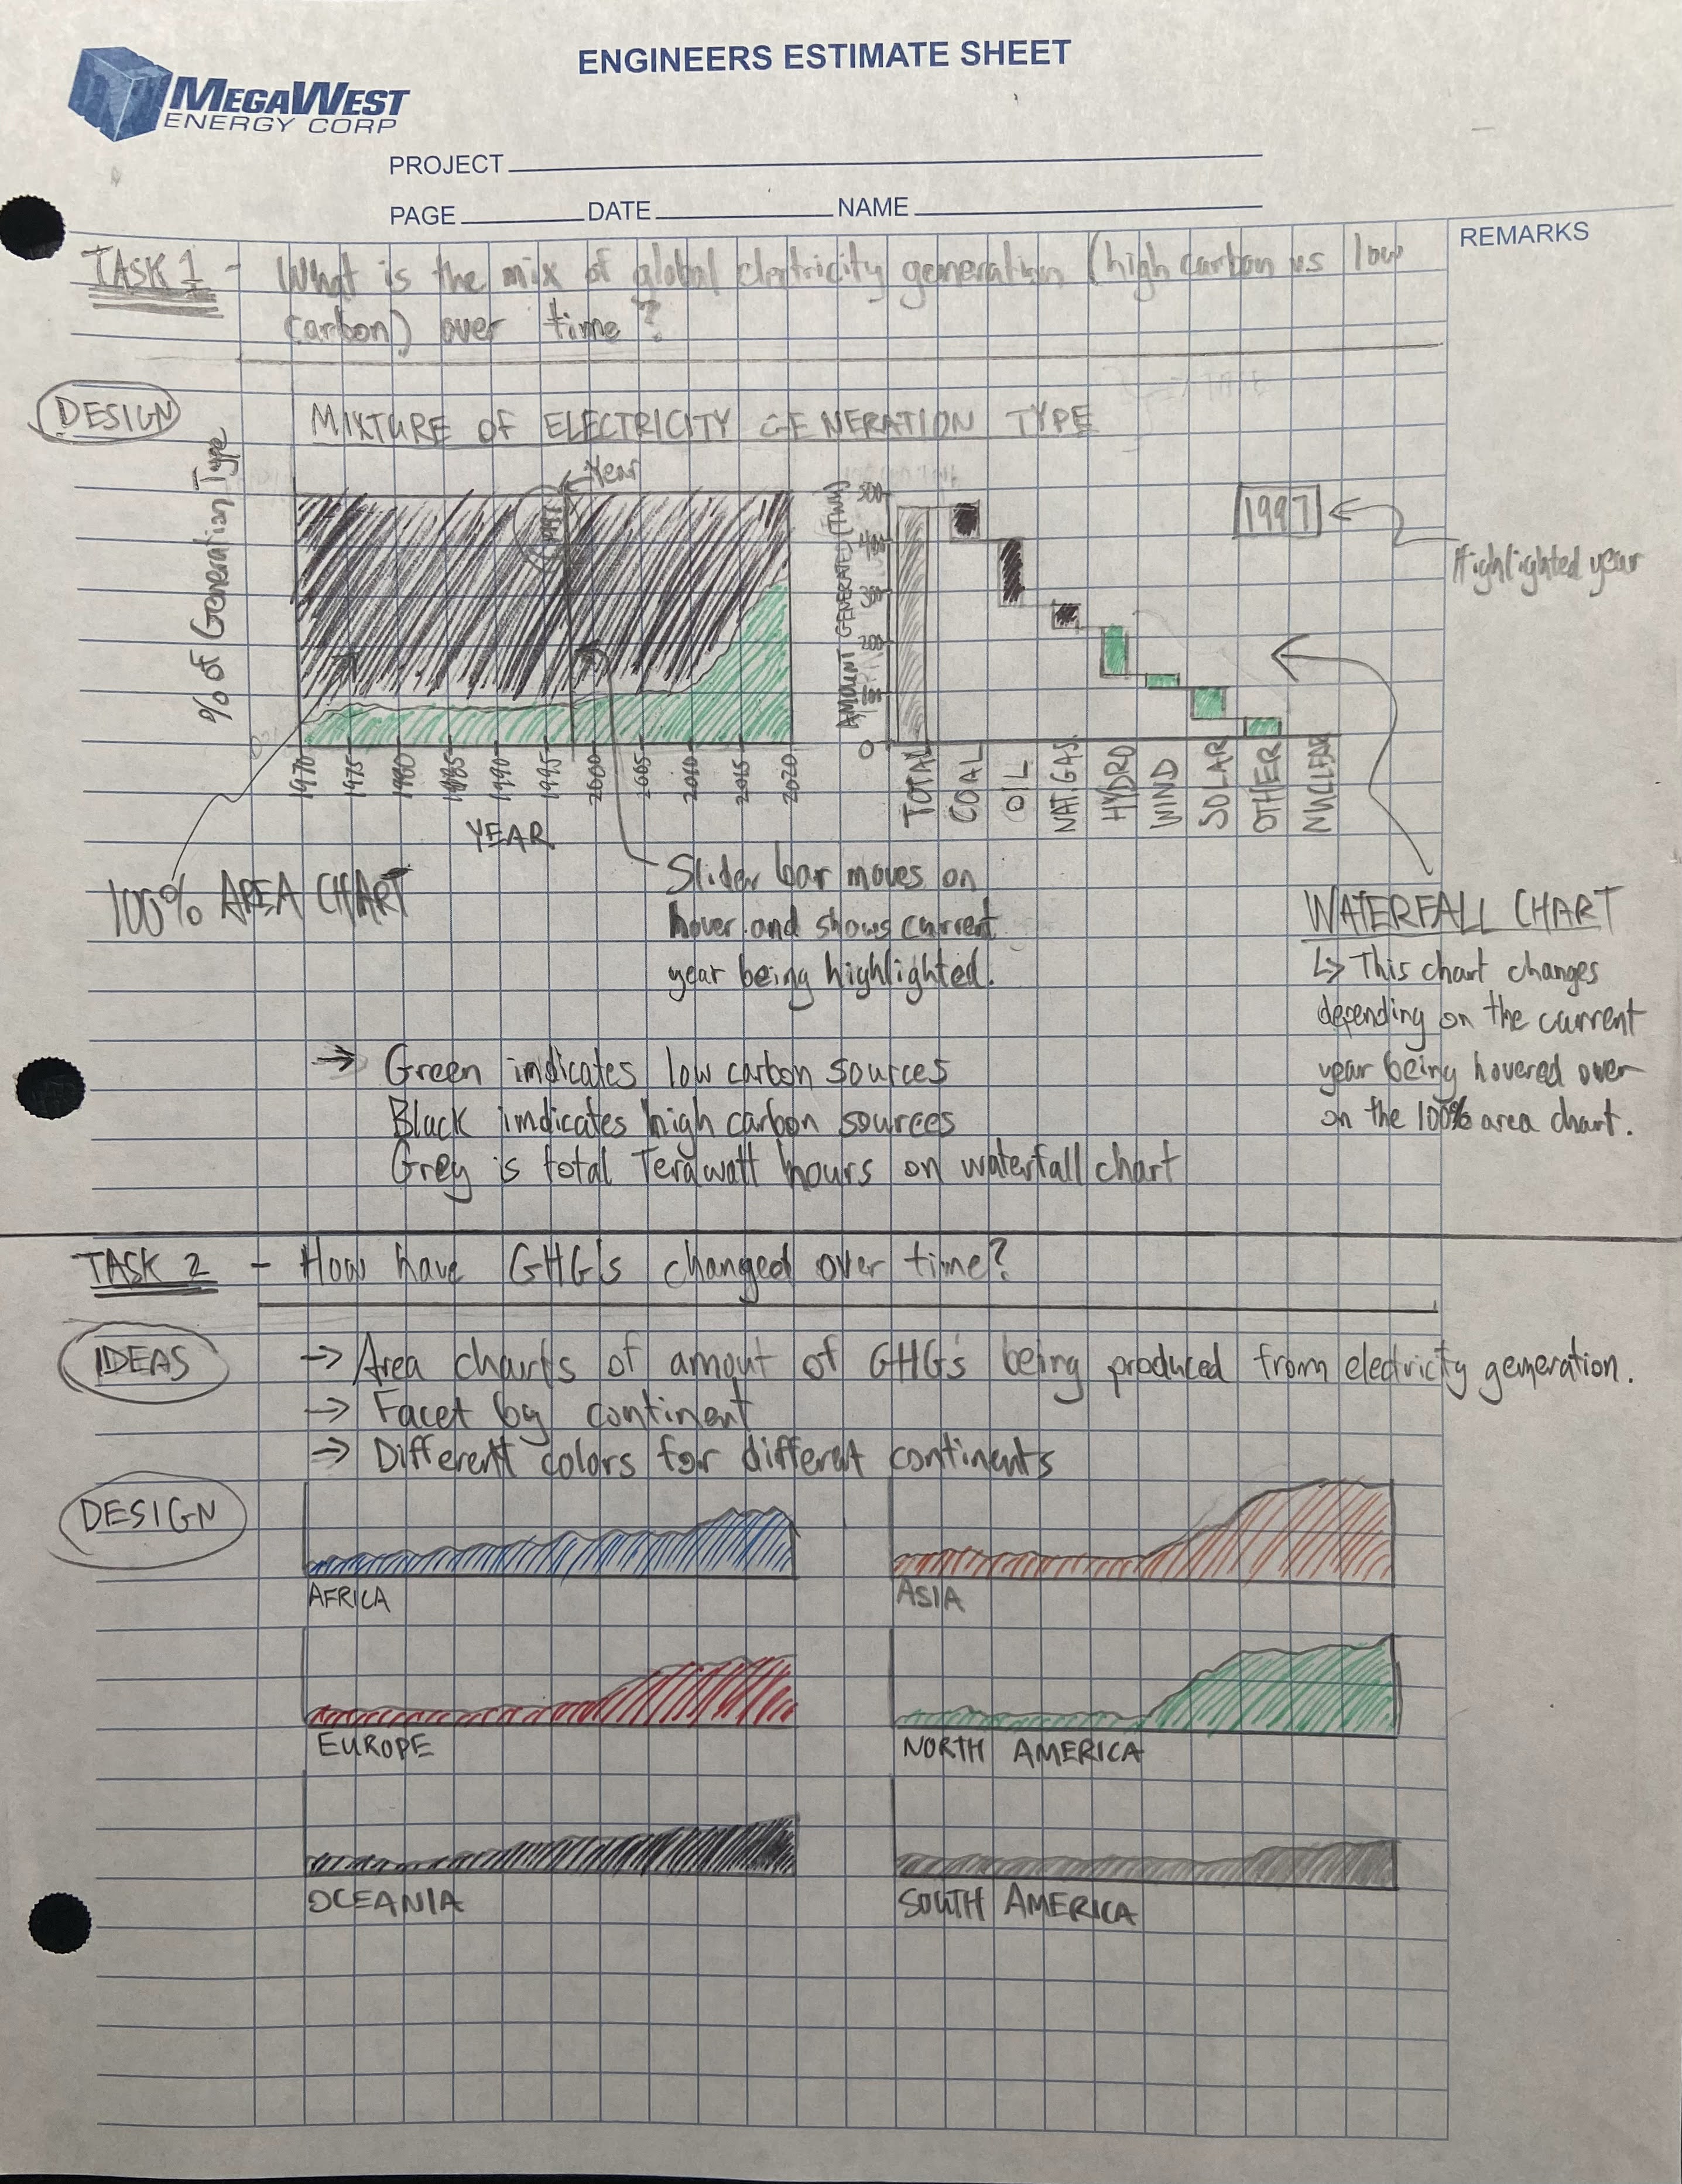 ENGINEERS ESTIMATE SHEET
MEGAWEST
ENERGY CORP
PROJECT
PAGE DATE NAME
REMARKS
TASK 1 - What is the mix of global electricity generation (high carbon vs low
carbon) over time?
DESIGN
MIXTURE OF ELECTRICITY GENERATION TYPE
% of Generation Type
Year
1997
0%
1970 1975 1980 1985 1990 1995 2000 2005 2010 2015 2020
YEAR
AMOUNT GENERATED (TWh)
500
400
300
200
100
0
TOTAL COAL OIL NAT.GAS HYDRO WIND SOLAR OTHER NUCLEAR
1997
Highlighted year
100% AREA CHART
Slider bar moves on
hover and shows current
year being highlighted.
WATERFALL CHART
↳ This chart changes
depending on the current
year being hovered over
on the 100% area chart.
→ Green indicates low carbon sources
Black indicates high carbon sources
Grey is total Terawatt hours on waterfall chart
TASK 2 - How have GHG's changed over time?
IDEAS
→ Area charts of amout of GHG's being produced from electricity generation.
→ Facet by continent
→ Different colors for differat continents
DESIGN
AFRICA
ASIA
EUROPE
NORTH AMERICA
OCEANIA
SOUTH AMERICA